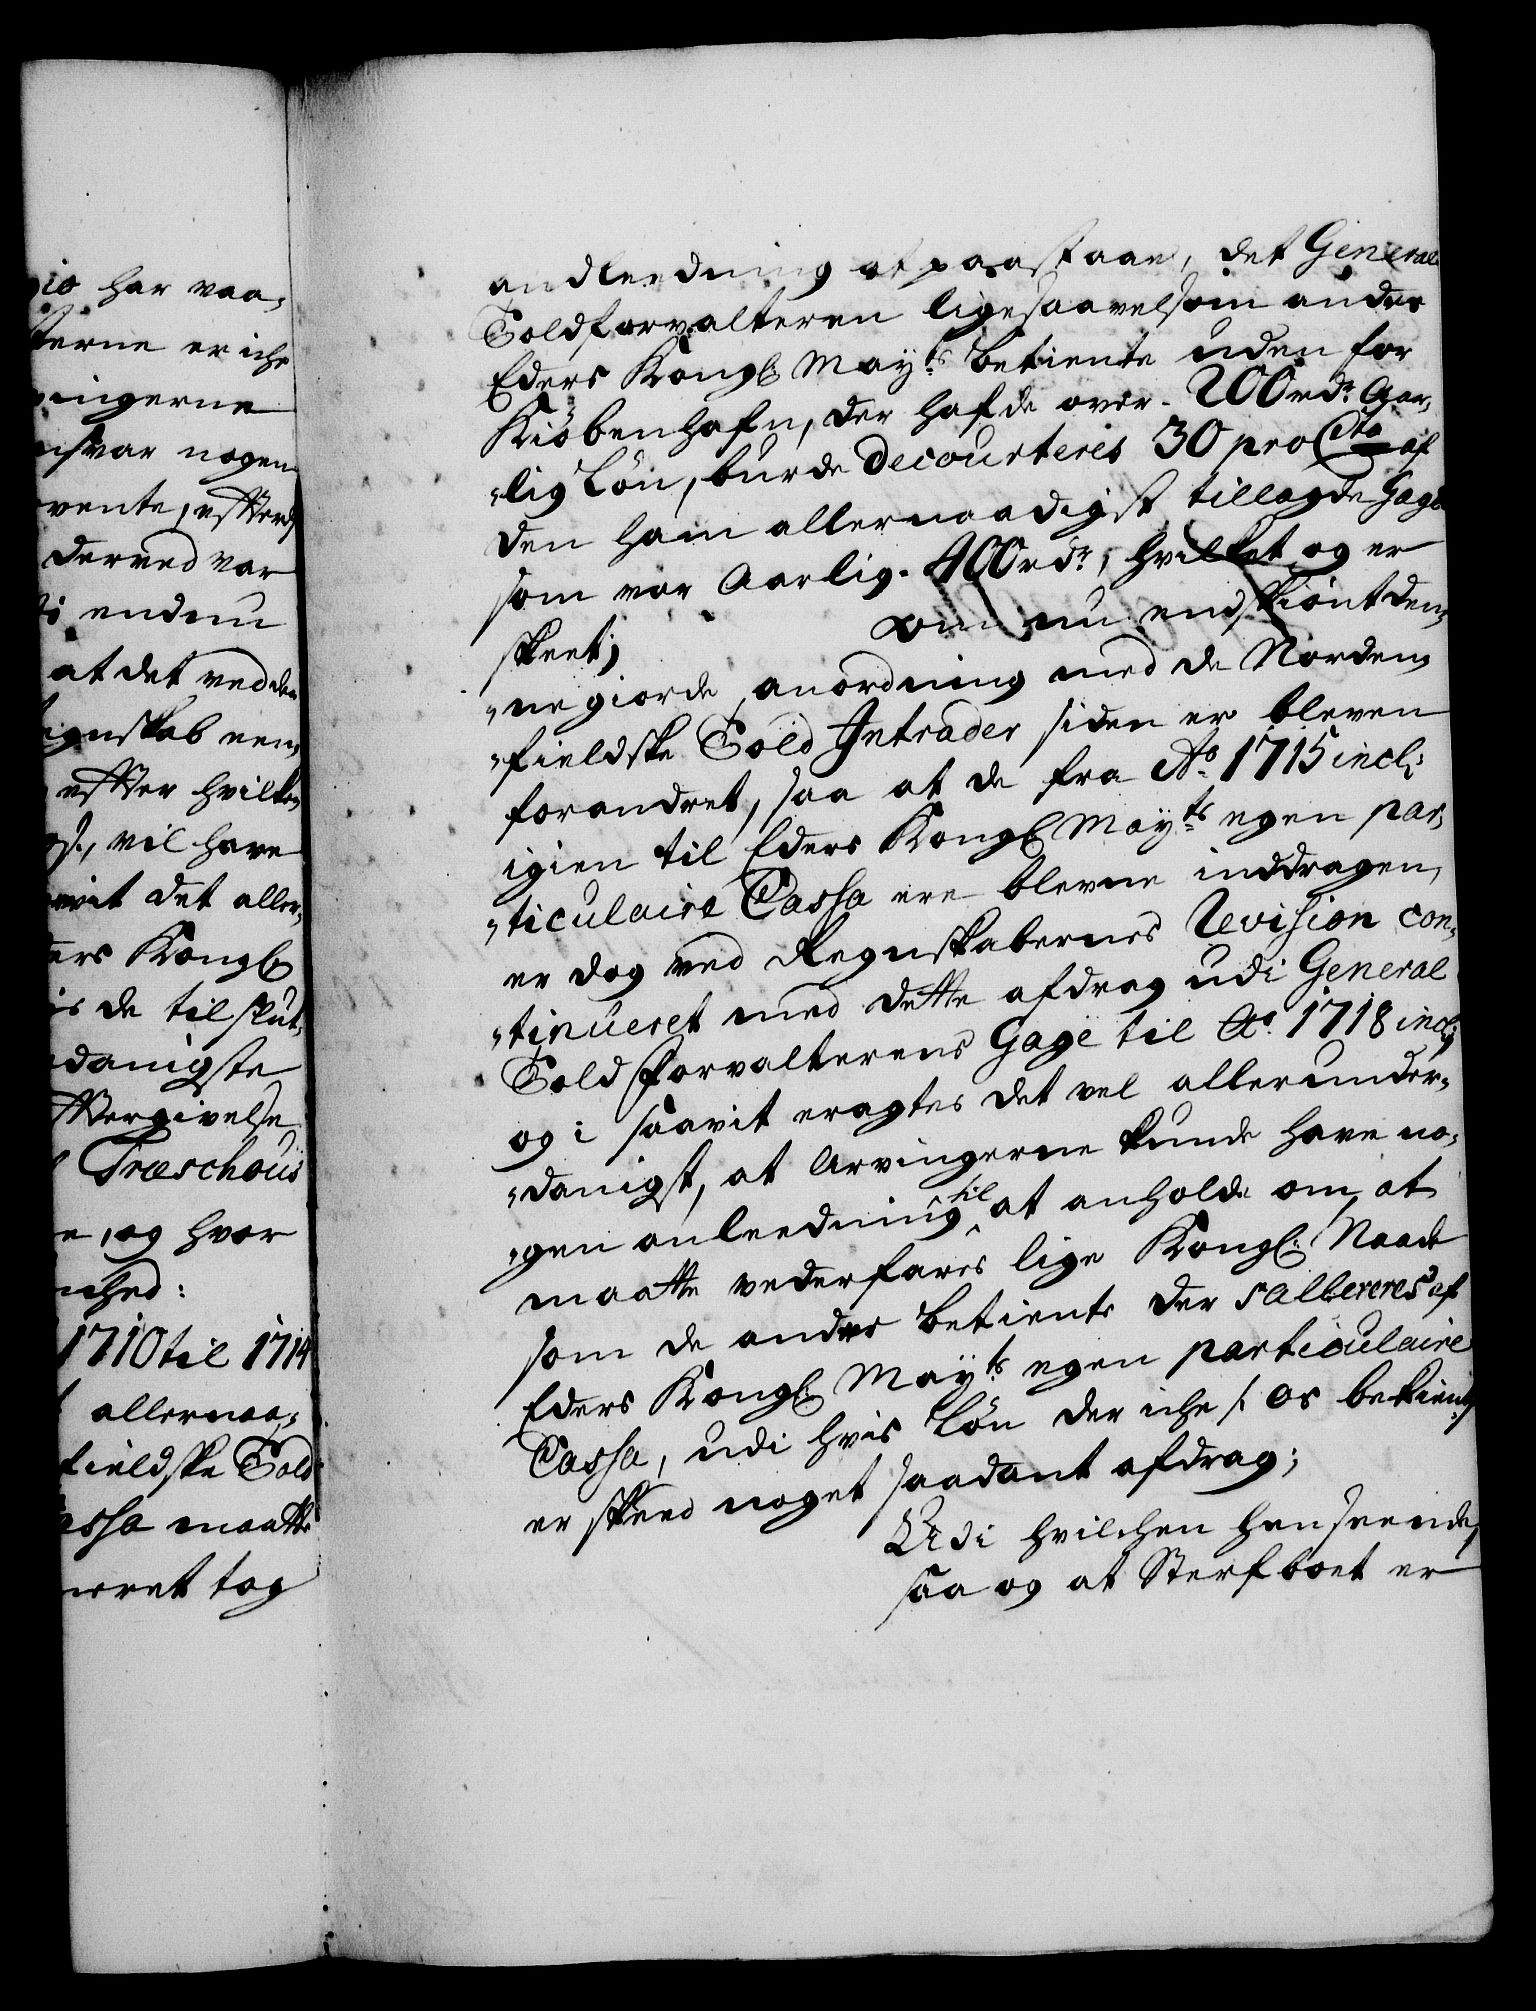 gio har vaa,
terne er iche
vingerne
nsvar nogen
vente, efterd
derved var
endnu
at det ved den
ignskab nem,
efter hvilken
vil have
vit det aller,
ders Kongl:
de til slut,
danigste
eftergivelse
Træschous
e, og hvor
nhed:
1710 til 1714
allernaa,
fieldske Told
assa maatte
neret tog
andleedning at paastaae, det General
Toldforvalteren ligesaavelsom andre
Eders Kongl: Mayts betiente uden for
Kiöbenhafn, der hafde over 200 rdr Aar,
„lig Lön, burde decourteris 30 pro Cto af
den ham allernaadigst tillagde Gage
som var Aarlig 400 rdr, hvilket og er
skeet;
om nu endskiönt den,
„ne giorde anordning med de Norden,
„fieldske Told Intrader siden er bleven
forandret, saa at de fra Ao 1715 incl:
igien til Eders Kongl: Mayts egen par,
„ticulaire Cassa ere blevne inddragen,
er dog ved Regnskabernes Revision con,
„tinueret med dette afdrag udi General
Toldforvalterens Gage til Ao 1718 incl;
og i saavit eragtes det vel allerunder,
„danigst, at Arvingerne kunde have no,
„gen anleedning til at anholde om, at
maatte vederfares lige Kongl: Naade
som de andre betiente der sallereres af
Eders Kongl: Mayts egen particulaire
Cassa, udi hvis Lön der iche /: os bekient
er skeed noget saadant afdrag;
Udi hvilchen henseende,
saa og at Sterfboet er